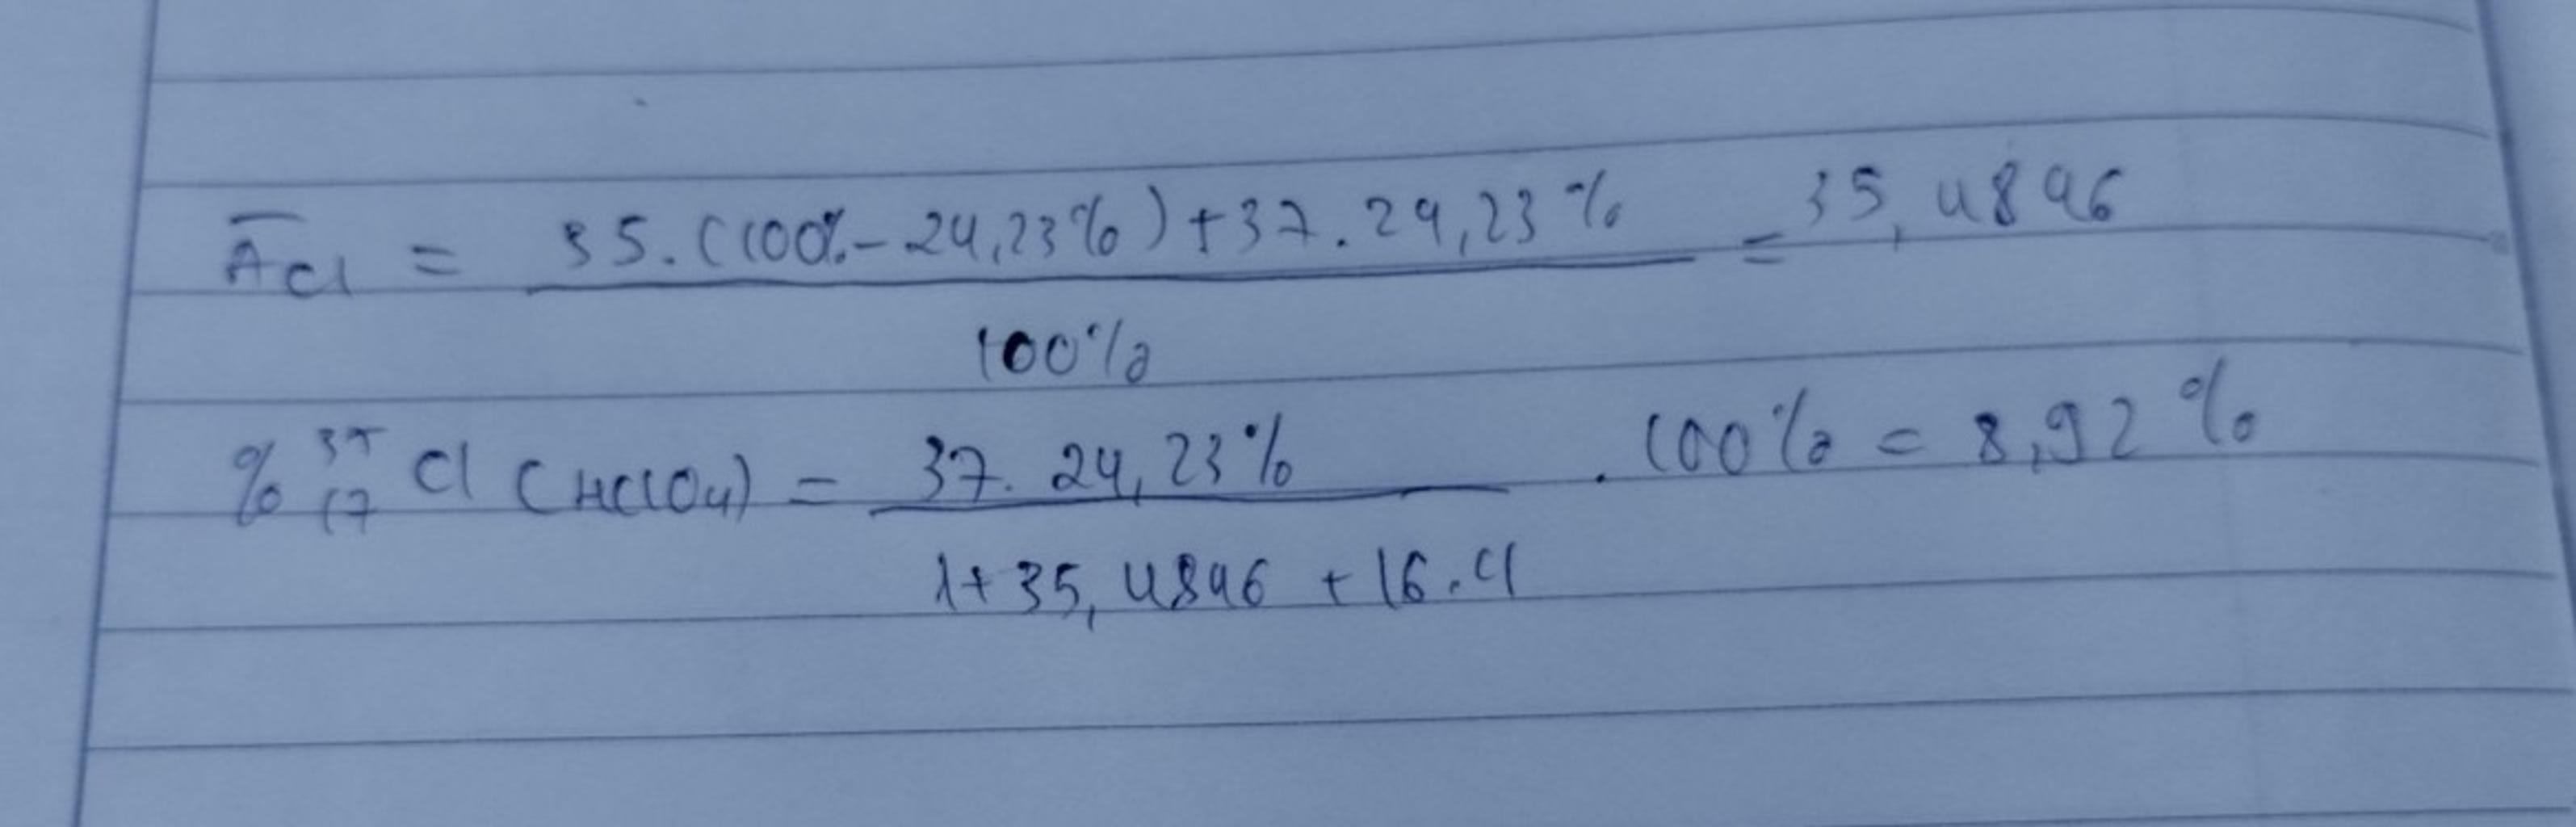 A̅Cl = 35.(100%-24,23%)+37.24,23% / 100% = 35,4846
% ³⁷₁₇Cl (HClO₄) = 37.24,23% / 1+35,4846+16.4 . 100% = 8,92%